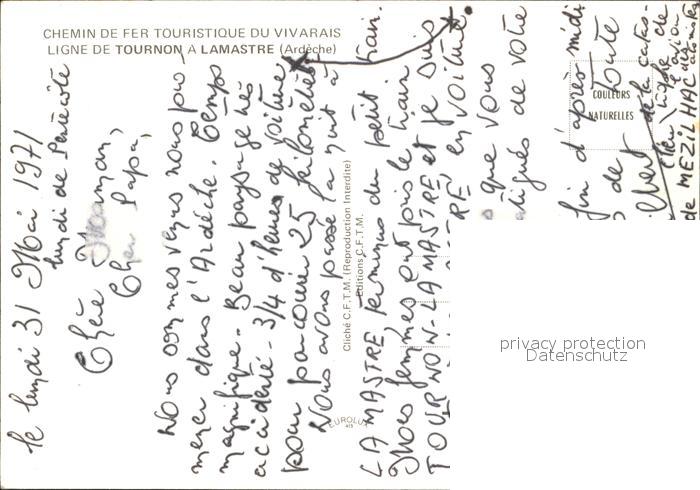 CHEMIN DE FER TOURISTIQUE DU VIVARAIS
LIGNE DE TOURNON A LAMASTRE (Ardèche)
le lundi 31 Mai 1971
lundi de Pentecôte
Chère Maman,
Cher Papa,
Nous sommes venus nous pro-
mener dans l'Ardèche. Temps
magnifique. Beau paysage très
accidenté - 3/4 d'heure de voiture
pour parcourir 25 kilomètres
Nous avons passé la nuit à
LAMASTRE, terminus du petit train.
Mes femmes ont pris le train
TOURNON-LAMASTRE et je suis
en voiture.
que vous
de votre
fin d'après midi
de toute
de MEZILHAC
Cliché C.F.T.M. (Reproduction Interdite)
Editions C.F.T.M.
EUROLUX
COULEURS
NATURELLES
privacy protection
Datenschutz